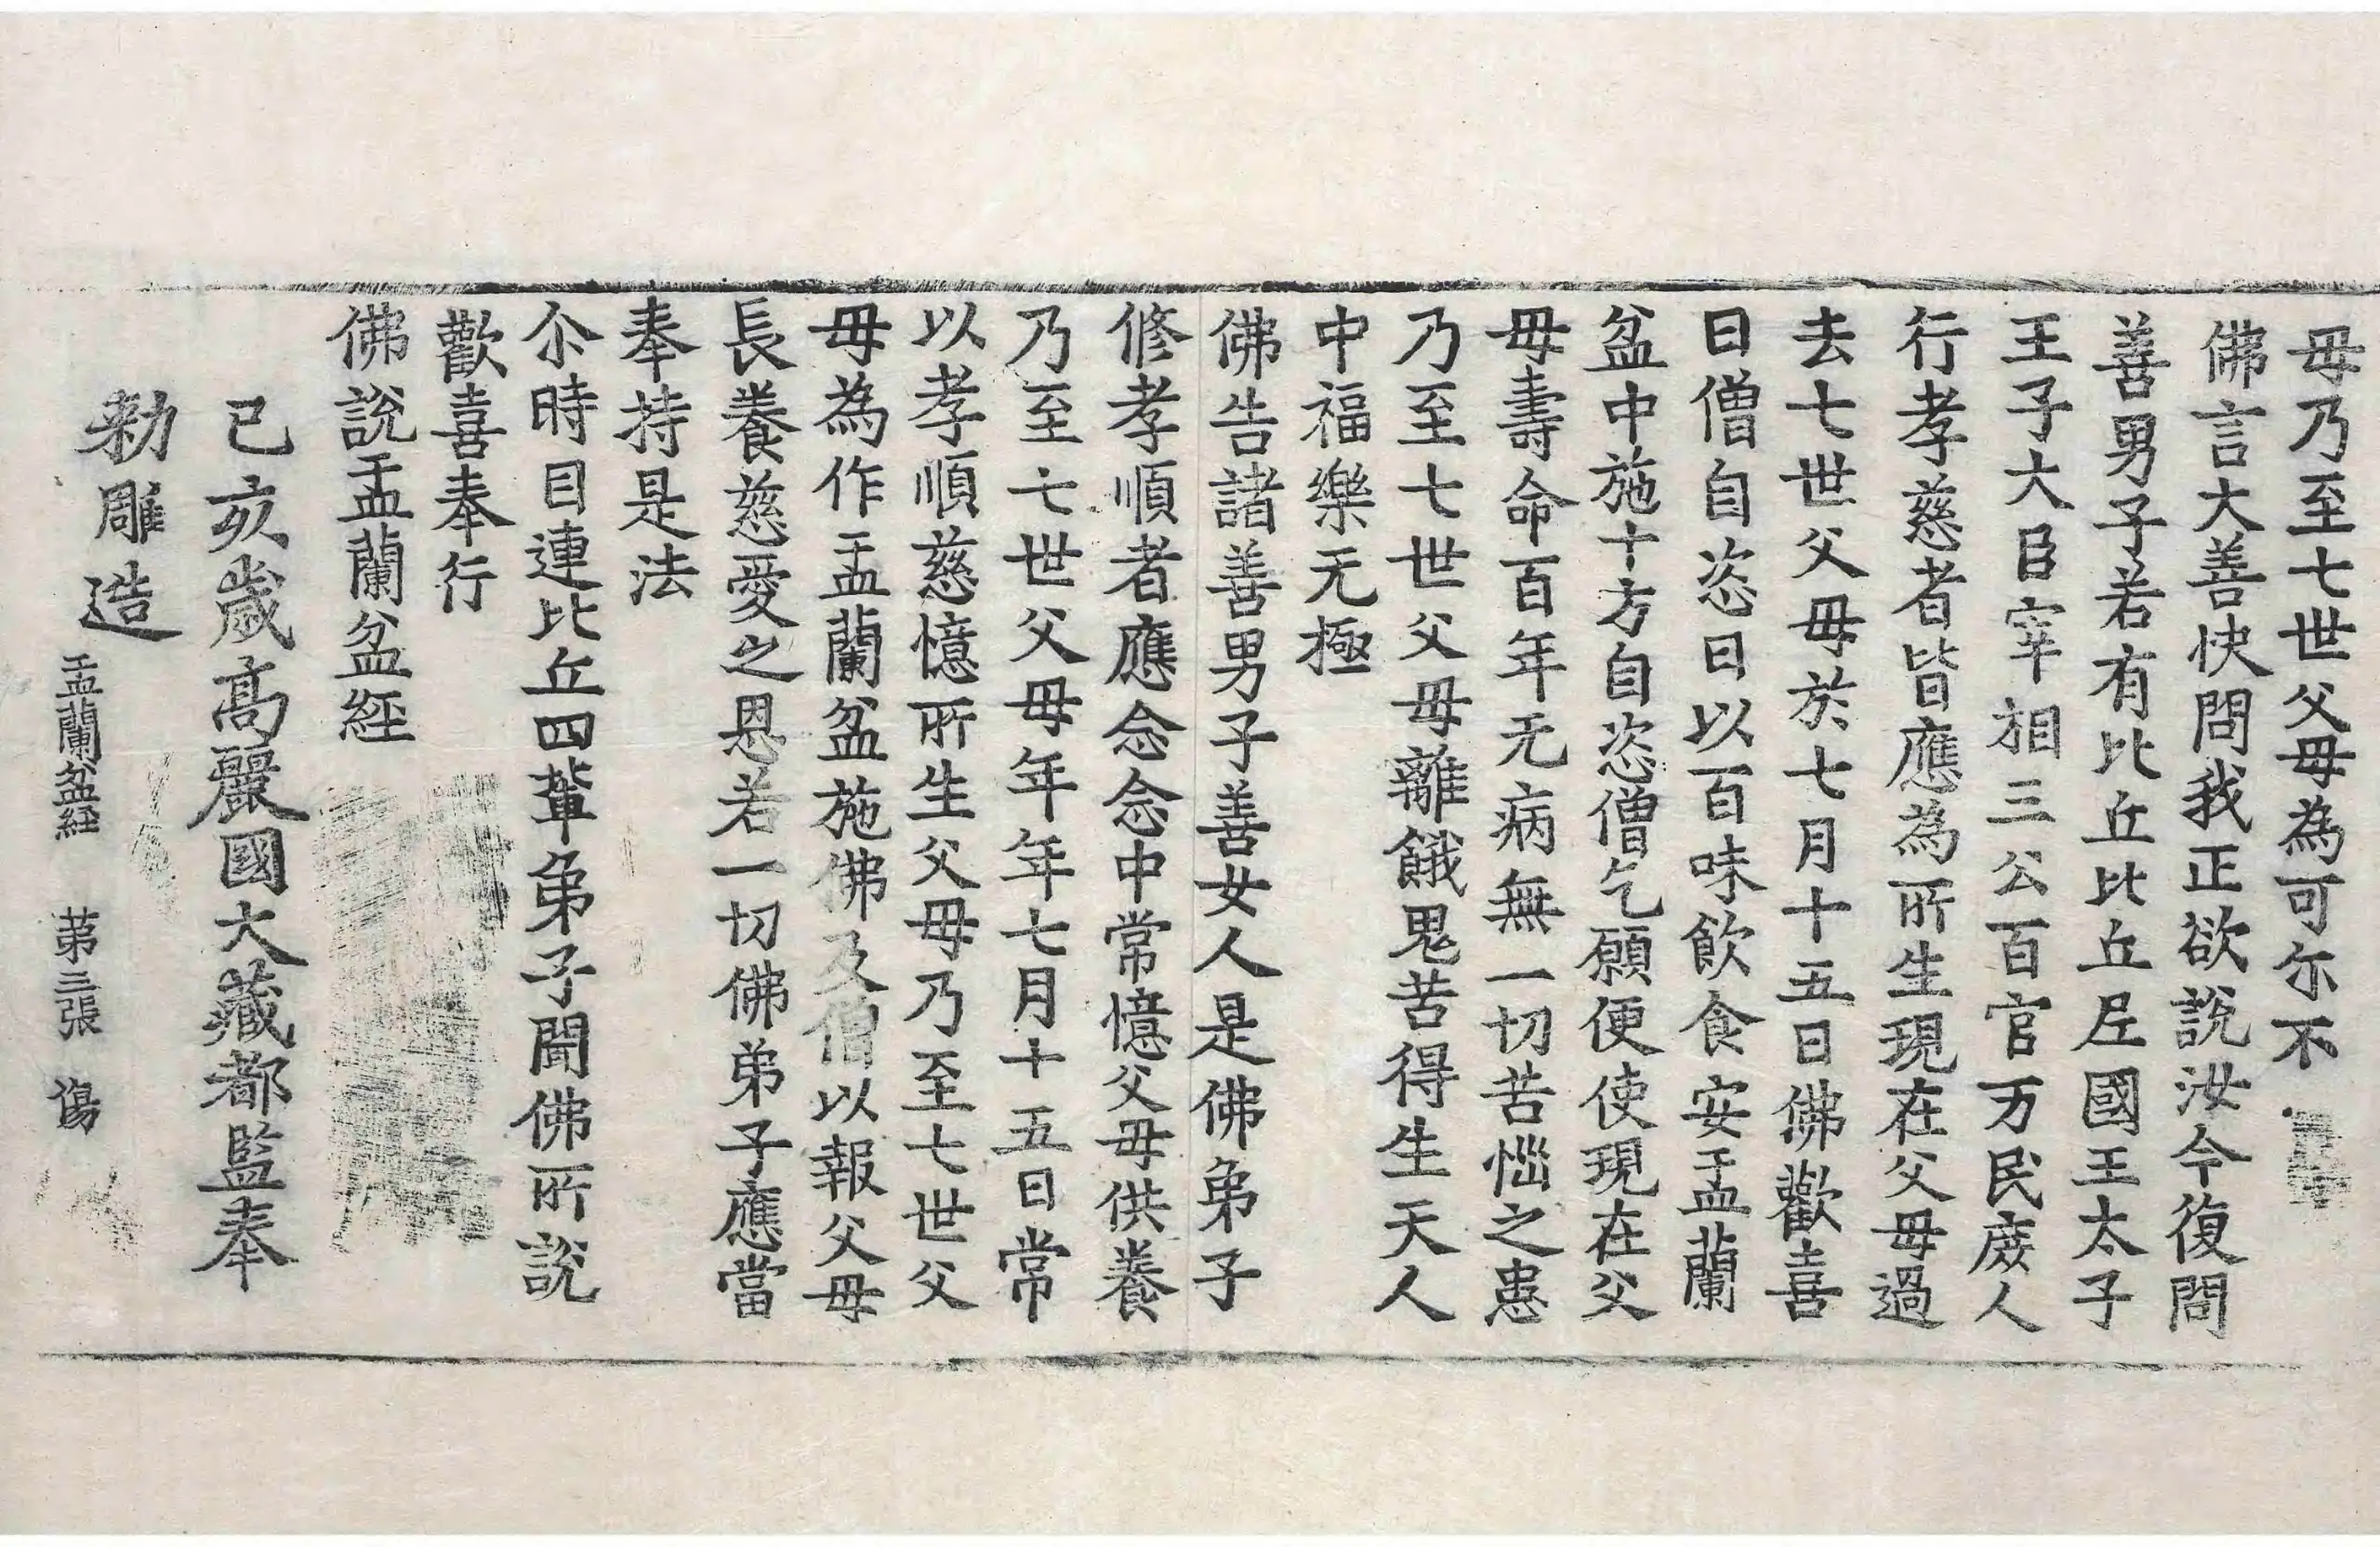 母乃至七世父母為可尒不
佛言大善快問我正欲說汝今復問
善男子若有比丘比丘尼國王太子
王子大臣宰相三公百官万民庻人
行孝慈者皆應為所生現在父母過
去七世父母於七月十五日佛歡喜
日僧自恣日以百味飲食安盂蘭
盆中施十方自恣僧乞願便使現在父
母壽命百年无病無一切苦惱之患
乃至七世父母離餓鬼苦得生天人
中福樂无極
佛告諸善男子善女人是佛弟子
修孝順者應念念中常憶父母供養
乃至七世父母年年七月十五日常
以孝順慈憶所生父母乃至七世父
母為作盂蘭盆施佛及僧以報父母
長養慈愛之恩若一切佛弟子應當
奉持是法
尒時目連比丘四輩弟子聞佛所說
歡喜奉行
佛說盂蘭盆經
己亥歲高麗國大藏都監奉
勅雕造
盂蘭盆経 苐三張 傷